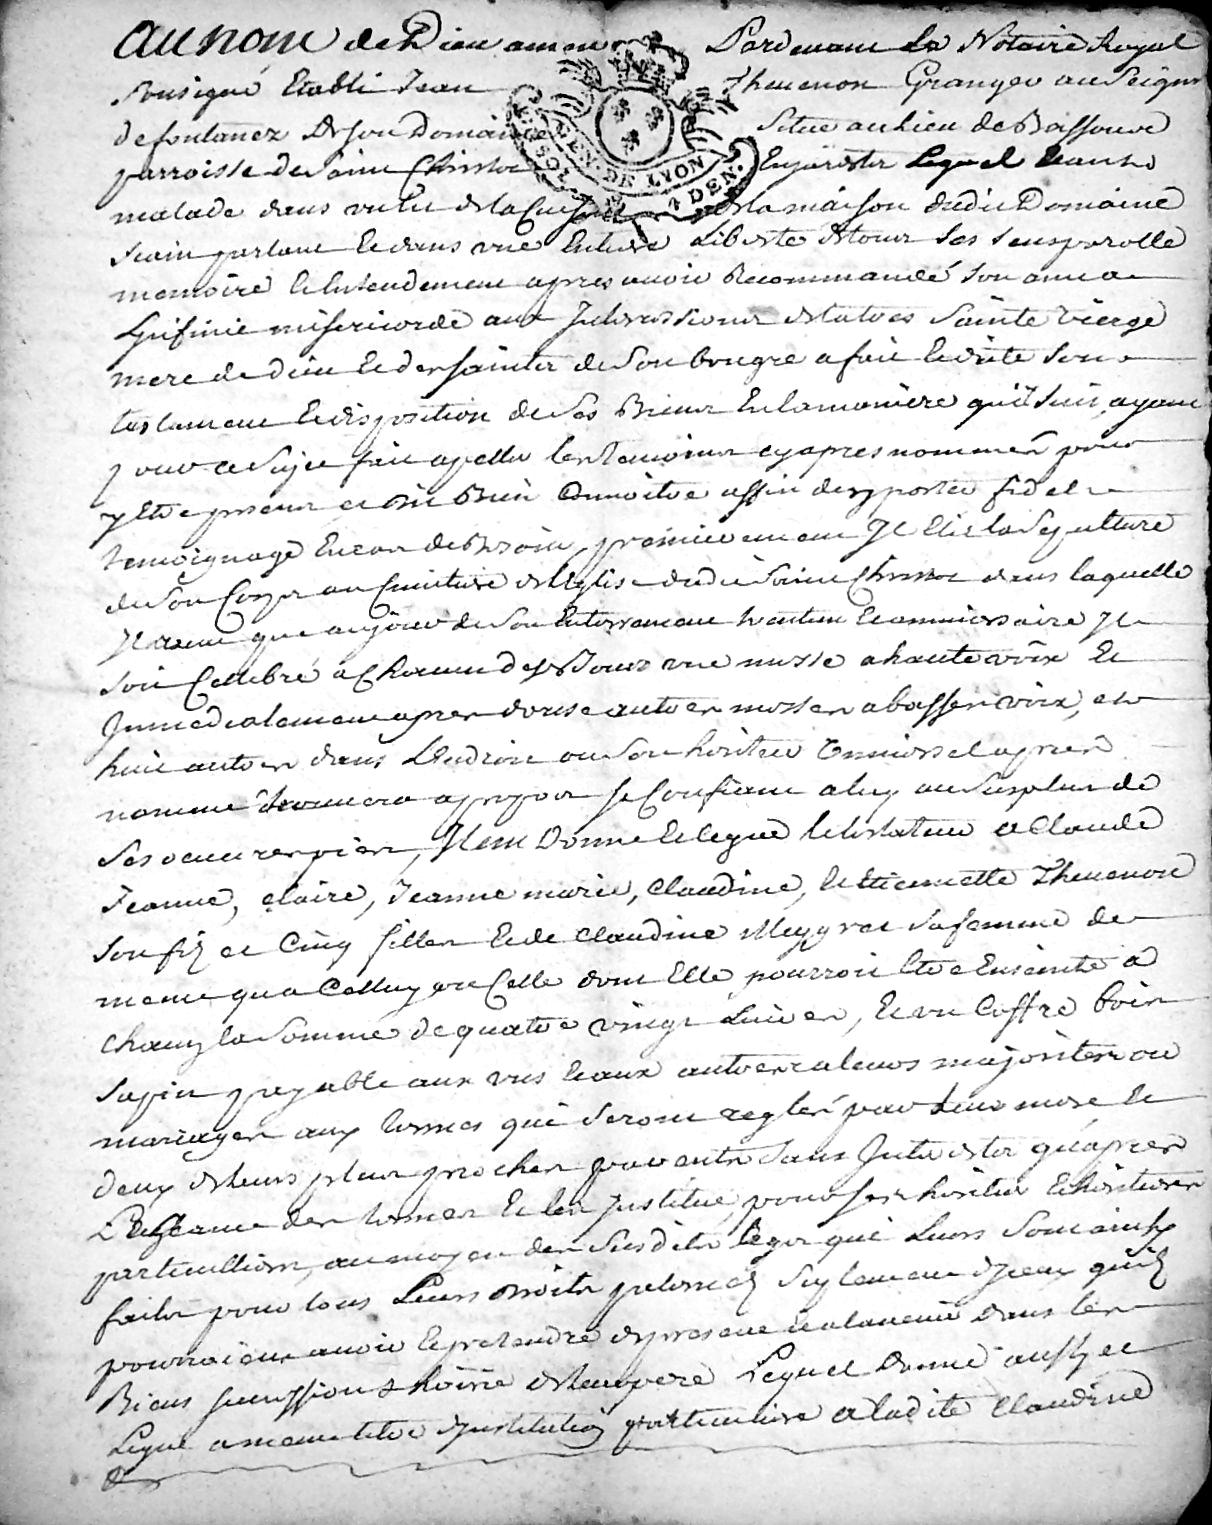 Au nom de Dieu amen Pardevant Le Notaire Royal
Sousigné Etabli Jean Thevenon Granger au Seignr
de fontanez De son Domaine Situe au lieu de Bassouve
parroisse de Saint Christo Lequel etant
malade dans de la Cuisine de la maison dudit Domaine
parlant et dans une Entiere Liberte de tous ses sens parolle
memoire et Entendement apres avoir Recommandé son ame a
L'Jnfinie misericorde aux Jntercessions de la tres Sainte Vierge
mere de Dieu et des saints de Son a fait et dicte son
testament et disposition de Ses Biens En la maniere quil suit ayant
pour ce sujet fait apeller les temoins cy apres nommés pour
y Etre presents et Bien Connoitre affin d'en porter fidel
temoignage En cas de Besoin, premierement Jl Elit la Sepulture
de Son Corps au Cimitiere de l'Eglise dudit Saint Christo dans laquelle
Jl veut que au jour de Son Enterrement trentein et anniversaire Jl
soit Celebré a Chacun des Jours une messe a haute voix Et
Jmmediatement apres douse autres messes a basses voix, et
huit autres dans L'Endroit ou Son heritier Universel apres
nommé trouvera apropos se Confiant a luy au Surplus de
Ses oeuvres pies, Jtem Donne et legue le testateur a Claude
Jeanne, claire, Jeanne marie, Claudine, et Etiennette Thevenon
Son fiz et Cinq filles et de Claudine sa femme de
meme qua Celluy ou Celle dont Elle pourroit Etre Enceinte a
Chacun la Somme de quatre vingt Livres, et un Coffre bois
Sapin payable aux uns et aux autres a leurs majorites ou
mariages aux termes qui Seront reglés par Leur mere et
deux de leurs plus proches parents Sans Jnterets qu'apres
L'Echeance des termes et les Jnstitue pour ses heritiers et heritieres
particulliers, au moyen des Susdits legs qui Leurs Sont ainsy
faits pour tous Leurs Droits paternels Suplement d'Jceux quils
pourroient avoir et pretendre de present et a lavenir dans les
Biens Succession & hoirie de leur pere Lequel Donne aussy et
Legue a meme titre d'Jnstitution particuliere a ladite Claudine
GEN. DE LYON
SOL 4 DEN.